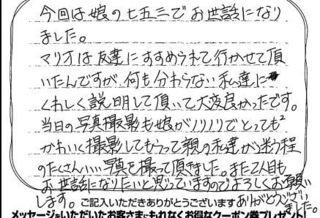 今回は娘の七五三でお世話になり
ました。
マリオは友達にすすめられて行かせて頂
いたんですが、何も分わらない私達に
くわしく説明して頂いて大変良かったです。
当日の写真撮影も娘がノリノリでとっても
かわいく撮影してもらって親の私達が迷う程
のたくさん…写真を撮って頂きました。また2人目も
お世話になりたいと思っていますのでよろしくお願い
します。
ありがとうござい
ました。
ご記入いただきありがとうございます
メッセージをいただいたお客さまにもれなくお得なクーポン券プレゼント!